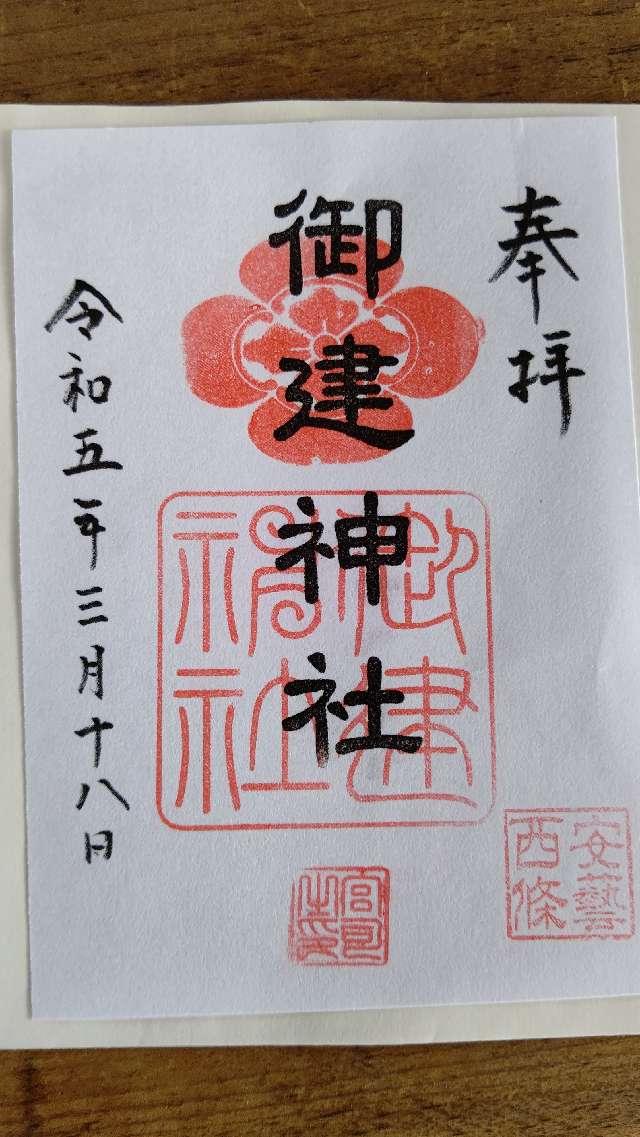 奉拝
御建神社
令和五年三月十八日
御建神社
安藝西條
宮司之印